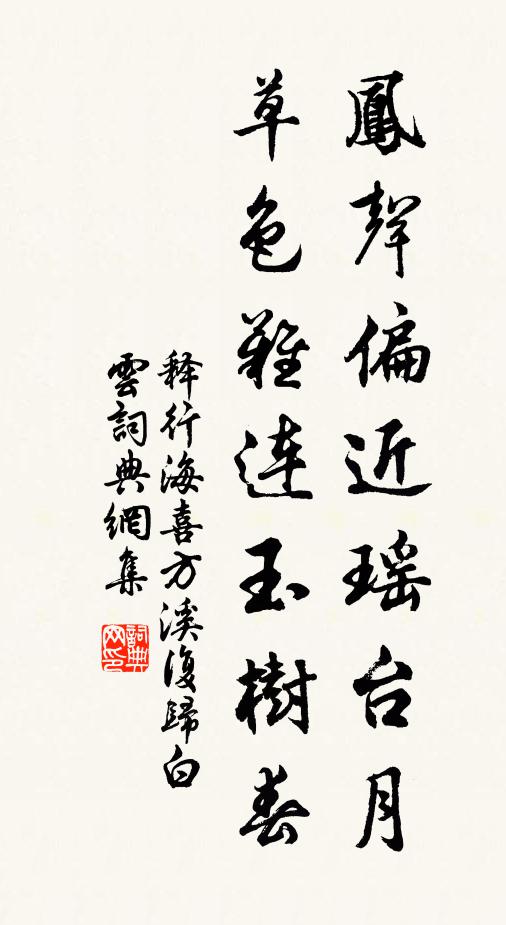 鳳聲偏近瑶台月
草色難連玉樹春
释行海喜方溪復歸白
雲詞典網集
詞典网印